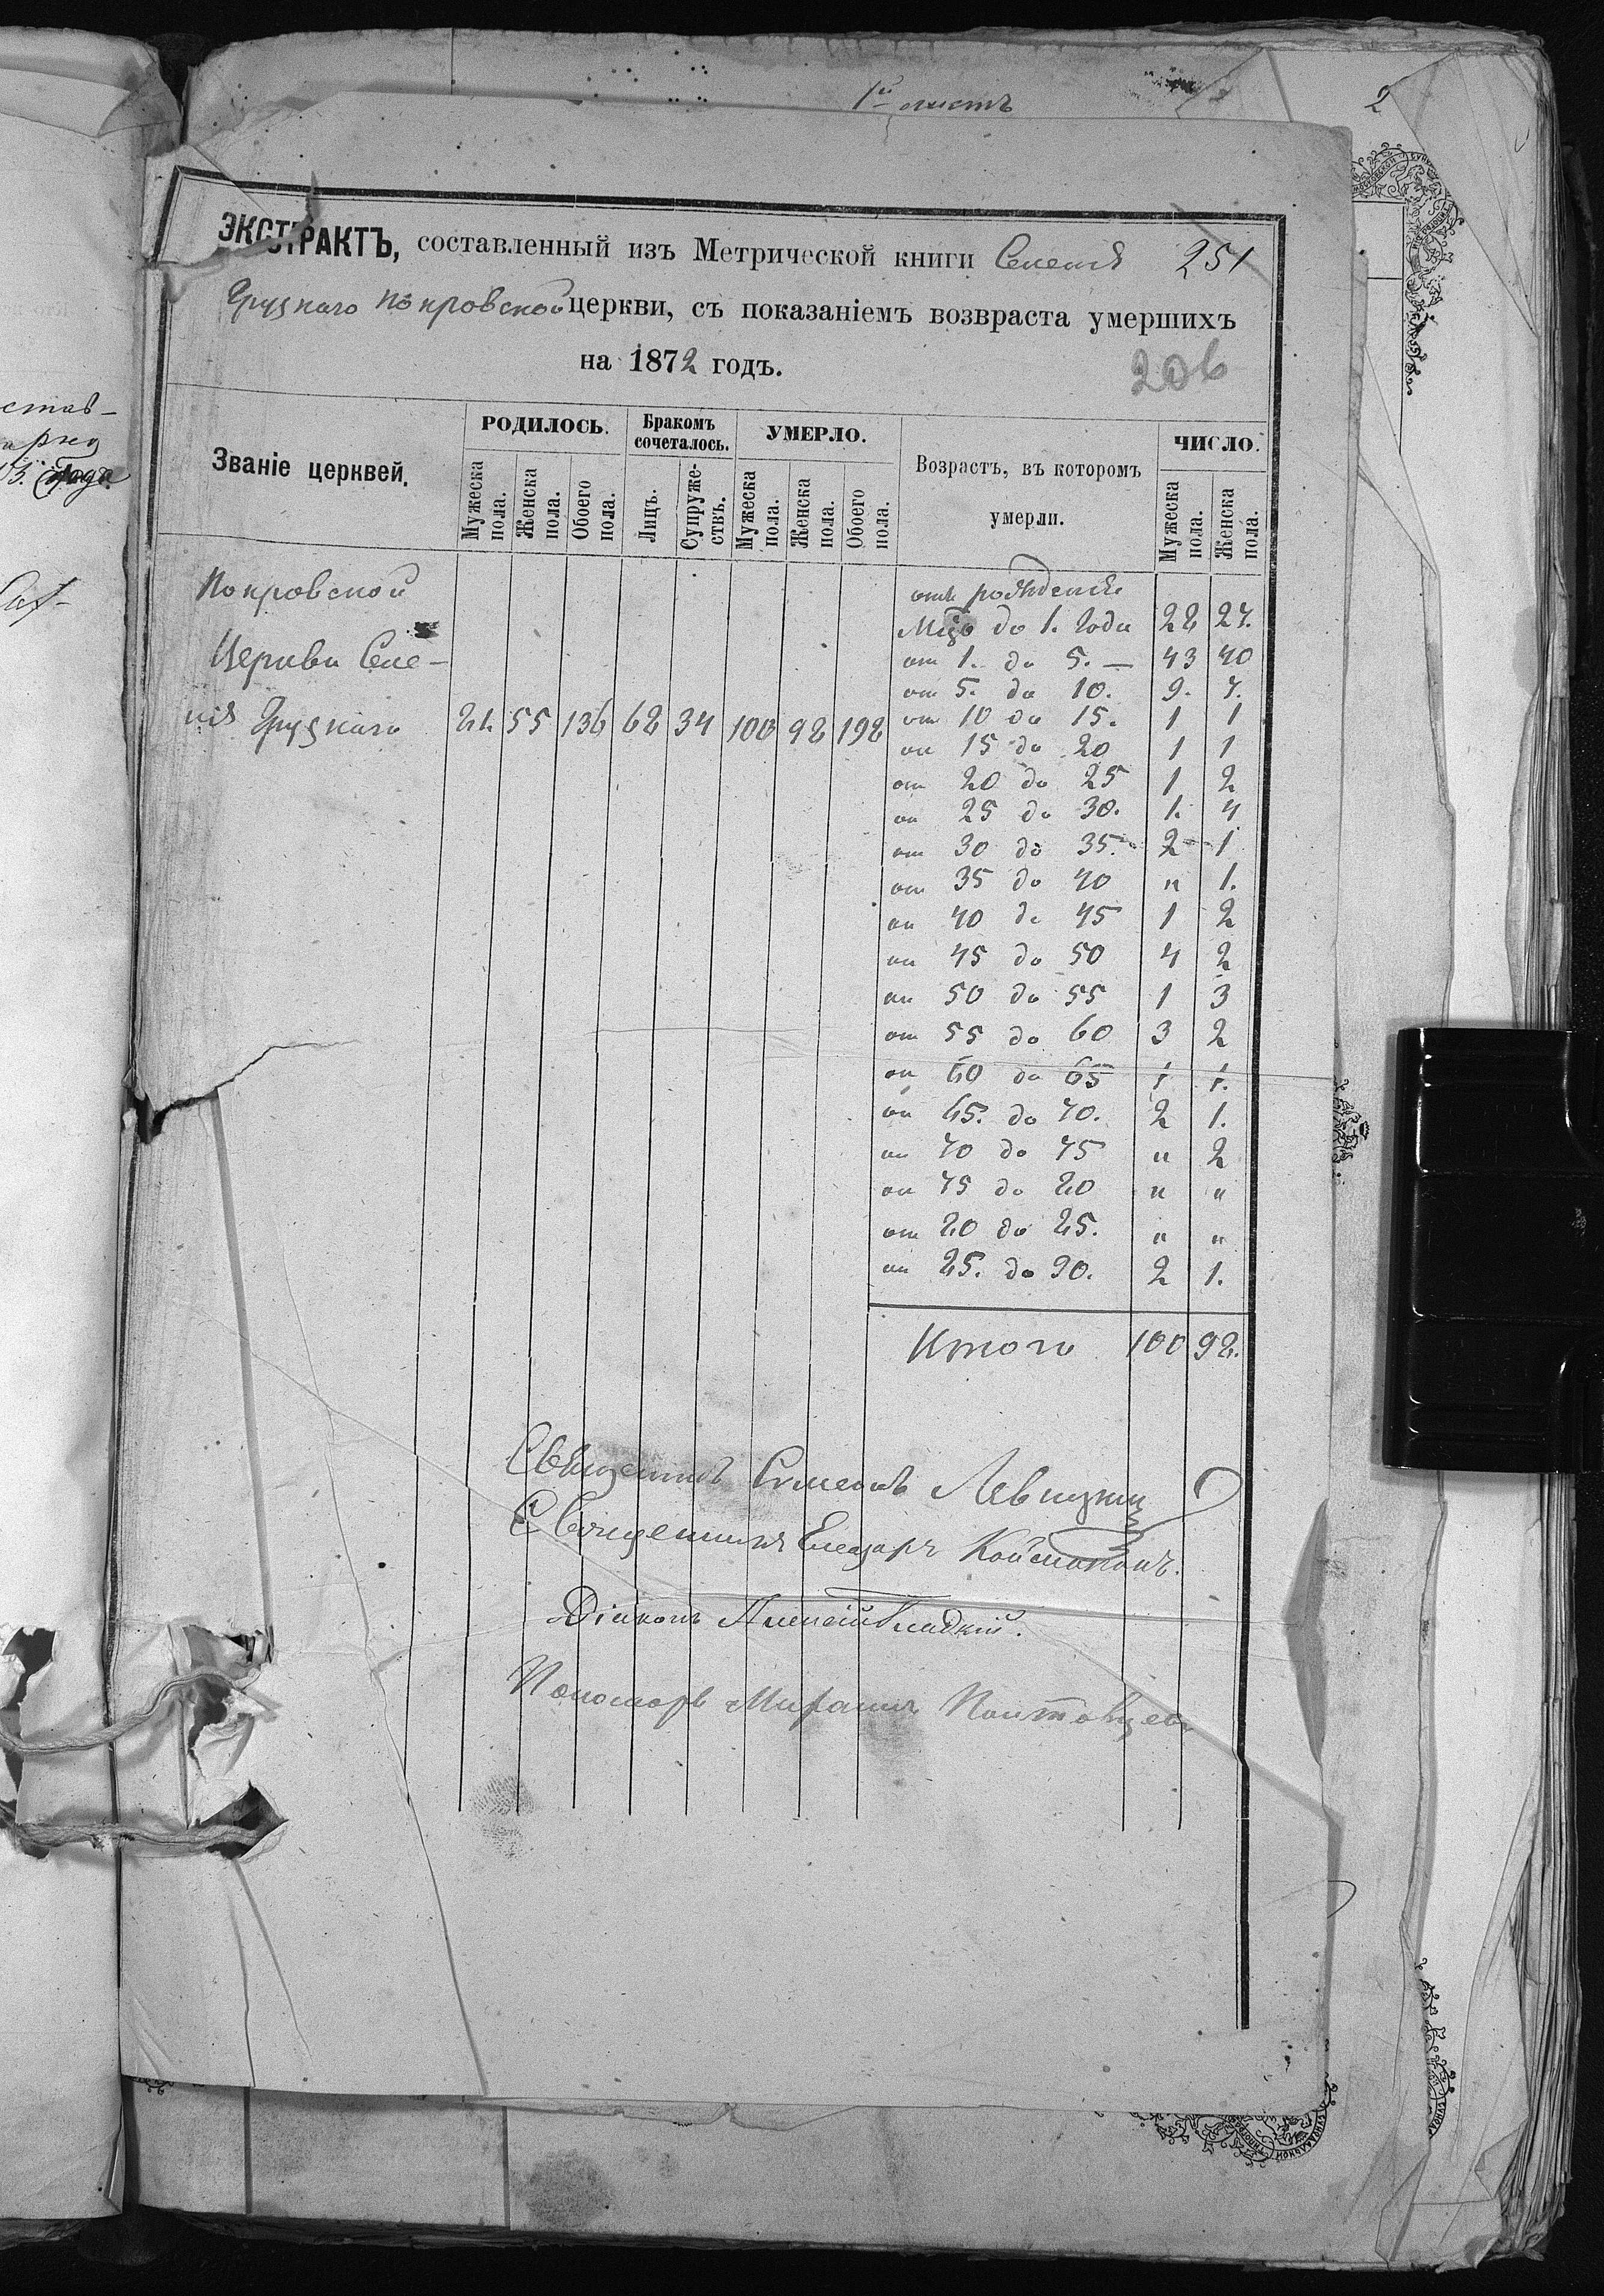 1й листъ
2
ЭКСТРАКТЪ, составленный изъ Метрической книги Селенія 251
Грузкаго Покровской церкви, съ показаніемъ возвраста умершихъ
на 1872 годъ.
206
Званіе церквей.
РОДИЛОСЬ.
Бракомъ сочеталось.
УМЕРЛО.
Возрастъ, въ которомъ умерли.
ЧИСЛО.
Мужеска пола.
Женска пола.
Обоего пола.
Лицъ.
Супруже-ствъ.
Мужеска пола.
Женска пола.
Обоего пола.
Мужеска пола.
Женска пола.
Покровской
Церкви Селе-
нія Грузкаго 81 55 136 68 34 100 98 198
отъ рожденія
до 1. года 28 27.
от 1. до 5. — 43 40
от 5. до 10. 9. 7.
от 10 до 15. 1 1
от 15 до 20 1 1
от 20 до 25 1 2
от 25 до 30. 1. 4
от 30 до 35. 2 1
от 35 до 40 " 1.
от 40 до 45 1 2
от 45 до 50 4 2
от 50 до 55 1 3
от 55 до 60 3 2
от 60 до 65 1 1.
от 65. до 70. 2 1.
от 70 до 75 " 2
от 75 до 80 " "
от 80 до 85. " "
от 85. до 90. 2 1.
Итого 100 98.
Священникъ Симеонъ Левицкій
Священникъ Елеазаръ
Діаконъ Алексій Гладкій.
Пономарь